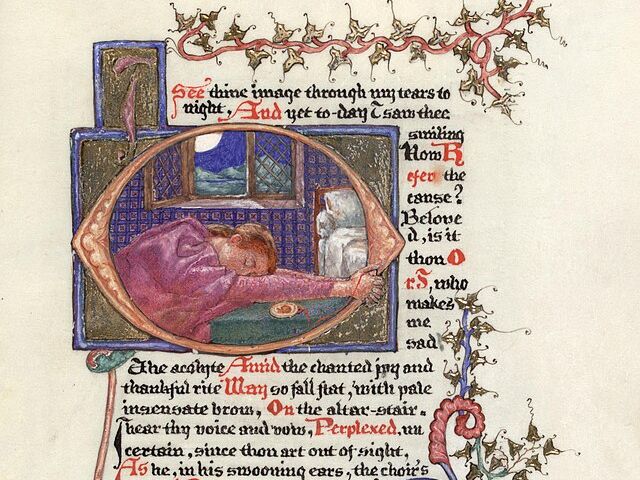 I See thine image through my tears to
night, And yet to-day I saw thee
smiling
How R
efer the
cause?
Belove
d, is it
thou O
r I, who
makes
me
sad
The acolyte Amid the chanted joy and
thankful rite May so fall flat, with pale
insensate brow, On the altar-stair.
I hear thy voice and vow, Perplexed, un
certain, since thou art out of sight,
As he, in his swooning ears, the choir's